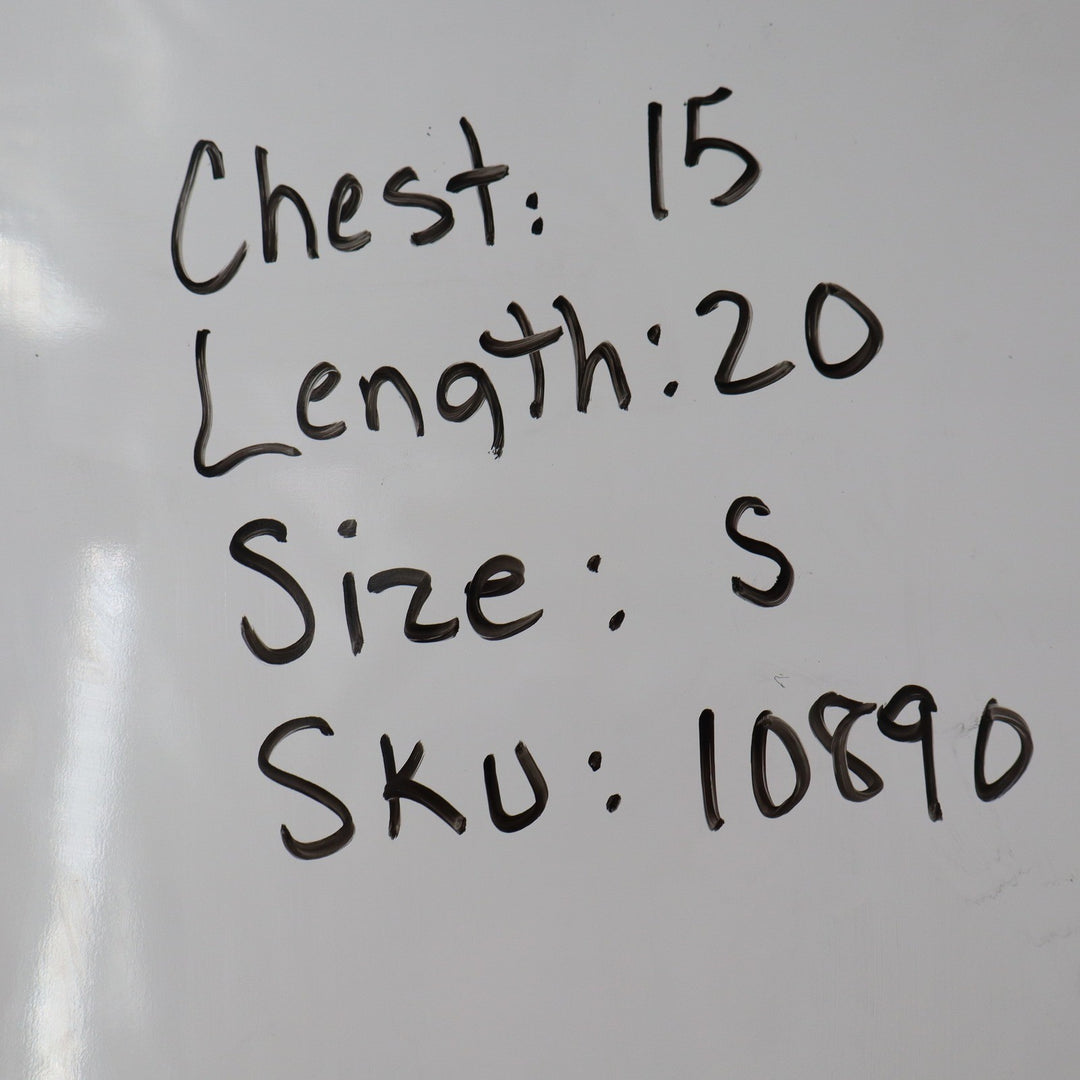 Chest: 15
Length: 20
Size: S
SKU: 10890